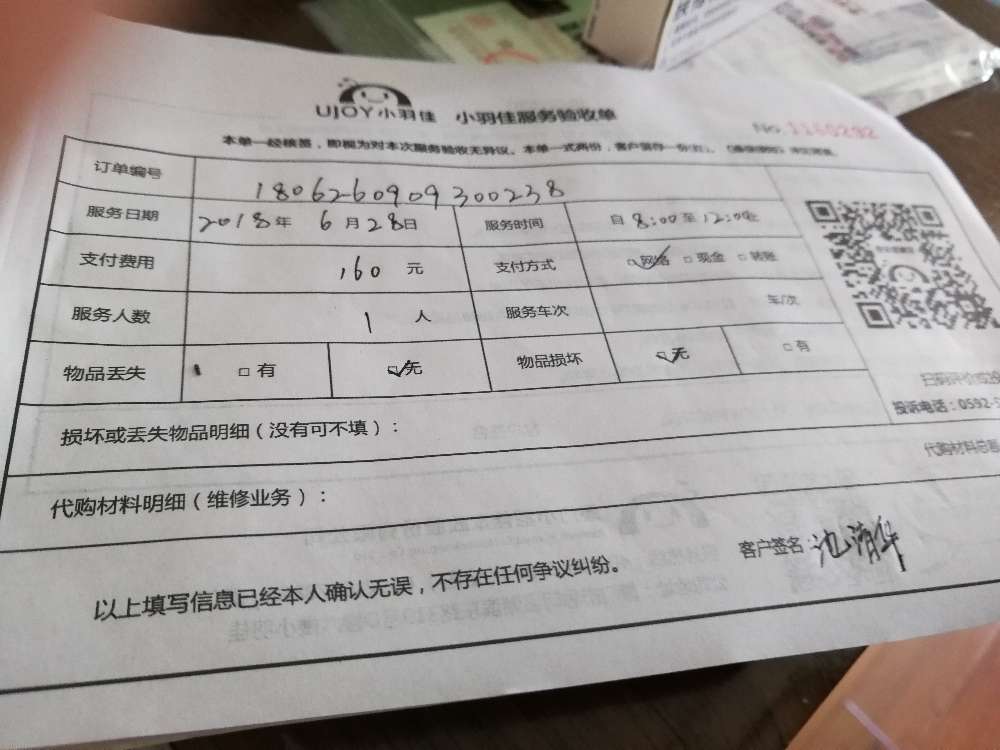 UJOY小羽佳 小羽佳服务验收单
No.1160292
本单一经核签，即视为对本次服务验收无异议。本单一式两份，客户留存一份
订单编号 180626090930023​8
服务日期 2018年 6月28日 服务时间 自 8:00至12:00止
支付费用 160 元 支付方式 ☑网络 □现金 □转账
服务人数 1 人 服务车次 车/次
物品丢失 □有 ☑无 物品损坏 ☑无 □有
扫码评价或投
投诉电话：0592-5
损坏或丢失物品明细（没有可不填）：
代购材料总额
代购材料明细（维修业务）：
客户签名：池清华
以上填写信息已经本人确认无误，不存在任何争议纠纷。